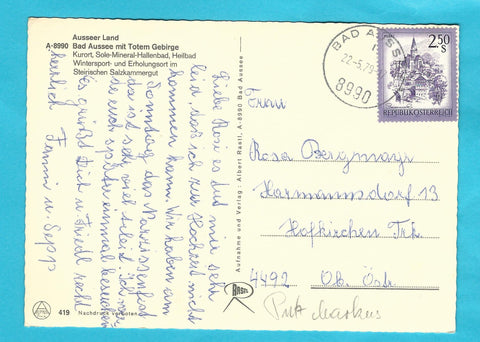 Ausseer Land
A-8990 Bad Aussee mit Totem Gebirge
Kurort, Sole-Mineral-Hallenbad, Heilbad
Wintersport- und Erholungsort im
Steirischen Salzkammergut
Liebe Rosi es tut mir sehr
leid, daß ich zur Hochzeit nicht
kommen kann. Wir haben am
Sonntag das Narzissenfest
da ist sehr viel
euch später einmal besuchen
Es grüßt Dich u. Friedl recht
herzlich Fanni u. Sepp
419 Nachdruck verboten
Aufnahme und Verlag: Albert Rastl, A-8990 Bad Aussee
RASTL
BAD AUSSEE
22-5.79
8990
2.50 S
REPUBLIK ÖSTERREICH
Frau
Rosa Bergmayr
Harmannsdorf 13
Hofkirchen Trk.
4492 Ob. Östr.
Markus